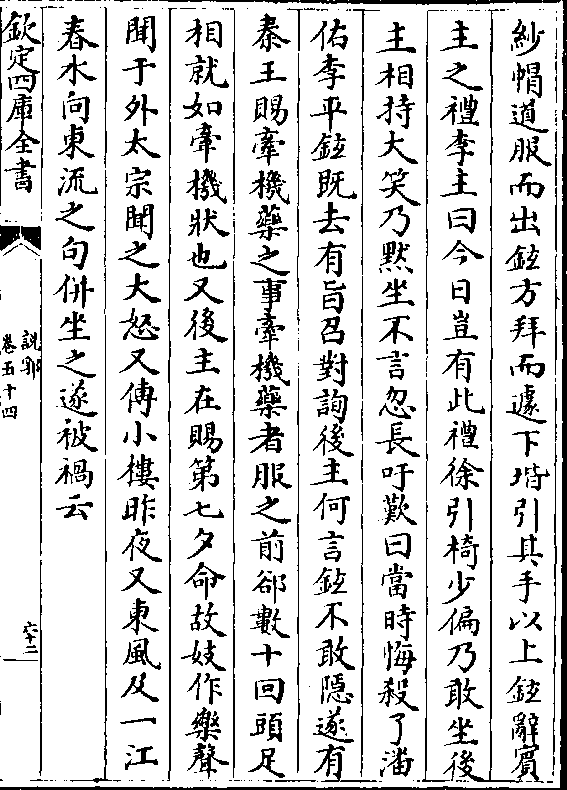 紗帽道服而出鉉方拜而遽下堦引其手以上鉉辭賓
主之禮李主曰今日豈有此禮徐引椅少偏乃敢坐後
主相持大笑乃黙坐不言忽長吁歎曰當時悔殺了潘
佑李平鉉既去有旨召對詢後主何言鉉不敢隱遂有
秦王賜牽機藥之事牽機藥者服之前郤數十回頭足
相就如牽機狀也又後主在賜第七夕命故妓作樂聲
聞于外太宗聞之大怒又傳小樓昨夜又東風及一江
春水向東流之句併坐之遂被禍云
欽定四庫全書
說郛
卷五十四
六十二